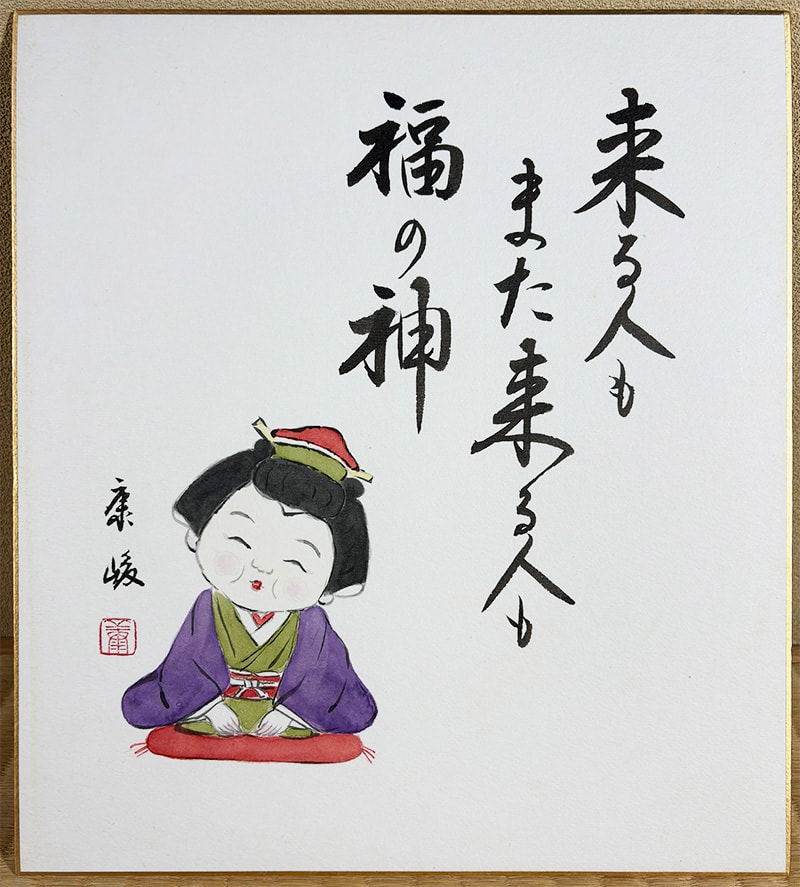 来る人も
また来る人も
福の神
康峻